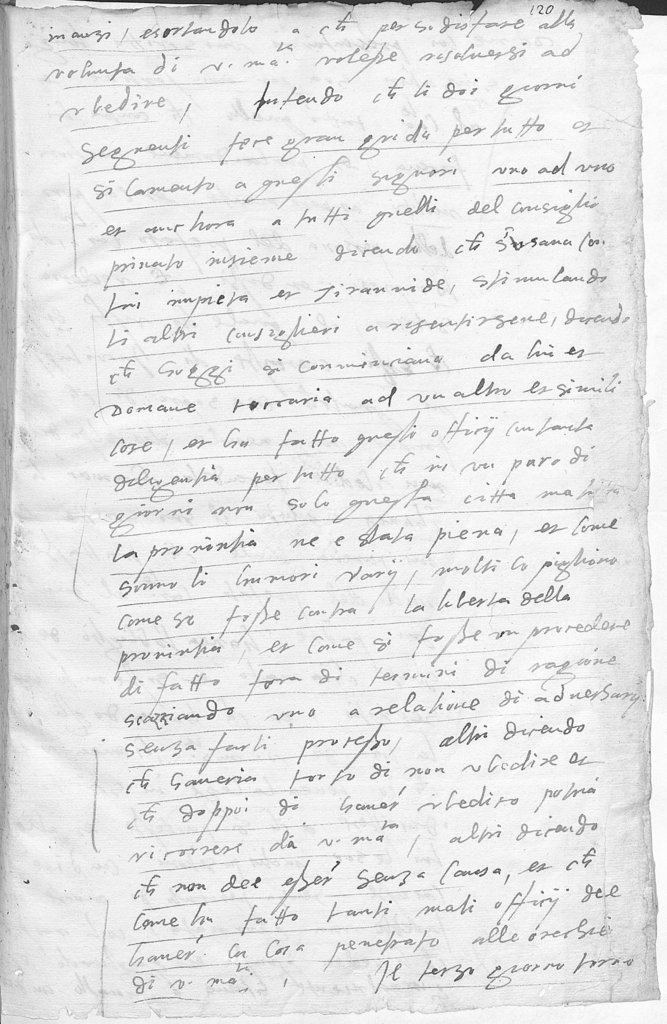 120
inanzi, esortandolo a ch per sodisfare alla
volunta di v. mata. volesse risolversi ad
vbedire, intendo ch li doi giorni
seguenti fece gran grida per tutto et
si lamento a questi signori vno ad vno
et anchora a tutti quelli del consiglio
privato insieme dicendo ch si vsava con
lui impieta et tirannide, stimulando
li altri consiglieri a risentirsene, dicendo
ch hoggi si cominciava da lui et
Domane toccaria ad vn altro et simili
cose, et ha fatto questi officij con tanta
diligentia per tutto ch in vn paro di
giorni non solo questa citta ma tutta
la provintia ne e stata piena, et come
sonno li humori varij, molti lo pigliono
come se fosse contra la liberta della
provintia, et come si fosse vn procedere
di fatto fora di termini di ragione
scazziando vno a relatione di adversarij
senza farli processo, altri dicendo
ch haveria torto di non vbedire et
ch doppoi di haver vbedito potria
ricorrere da v. mata, altri dicendo
ch non dee esser senza causa, et ch
come ha fatto tanti mali officij dee
haver la cosa penetrato alle orechie
di v. mata. Il terzo giorno torno